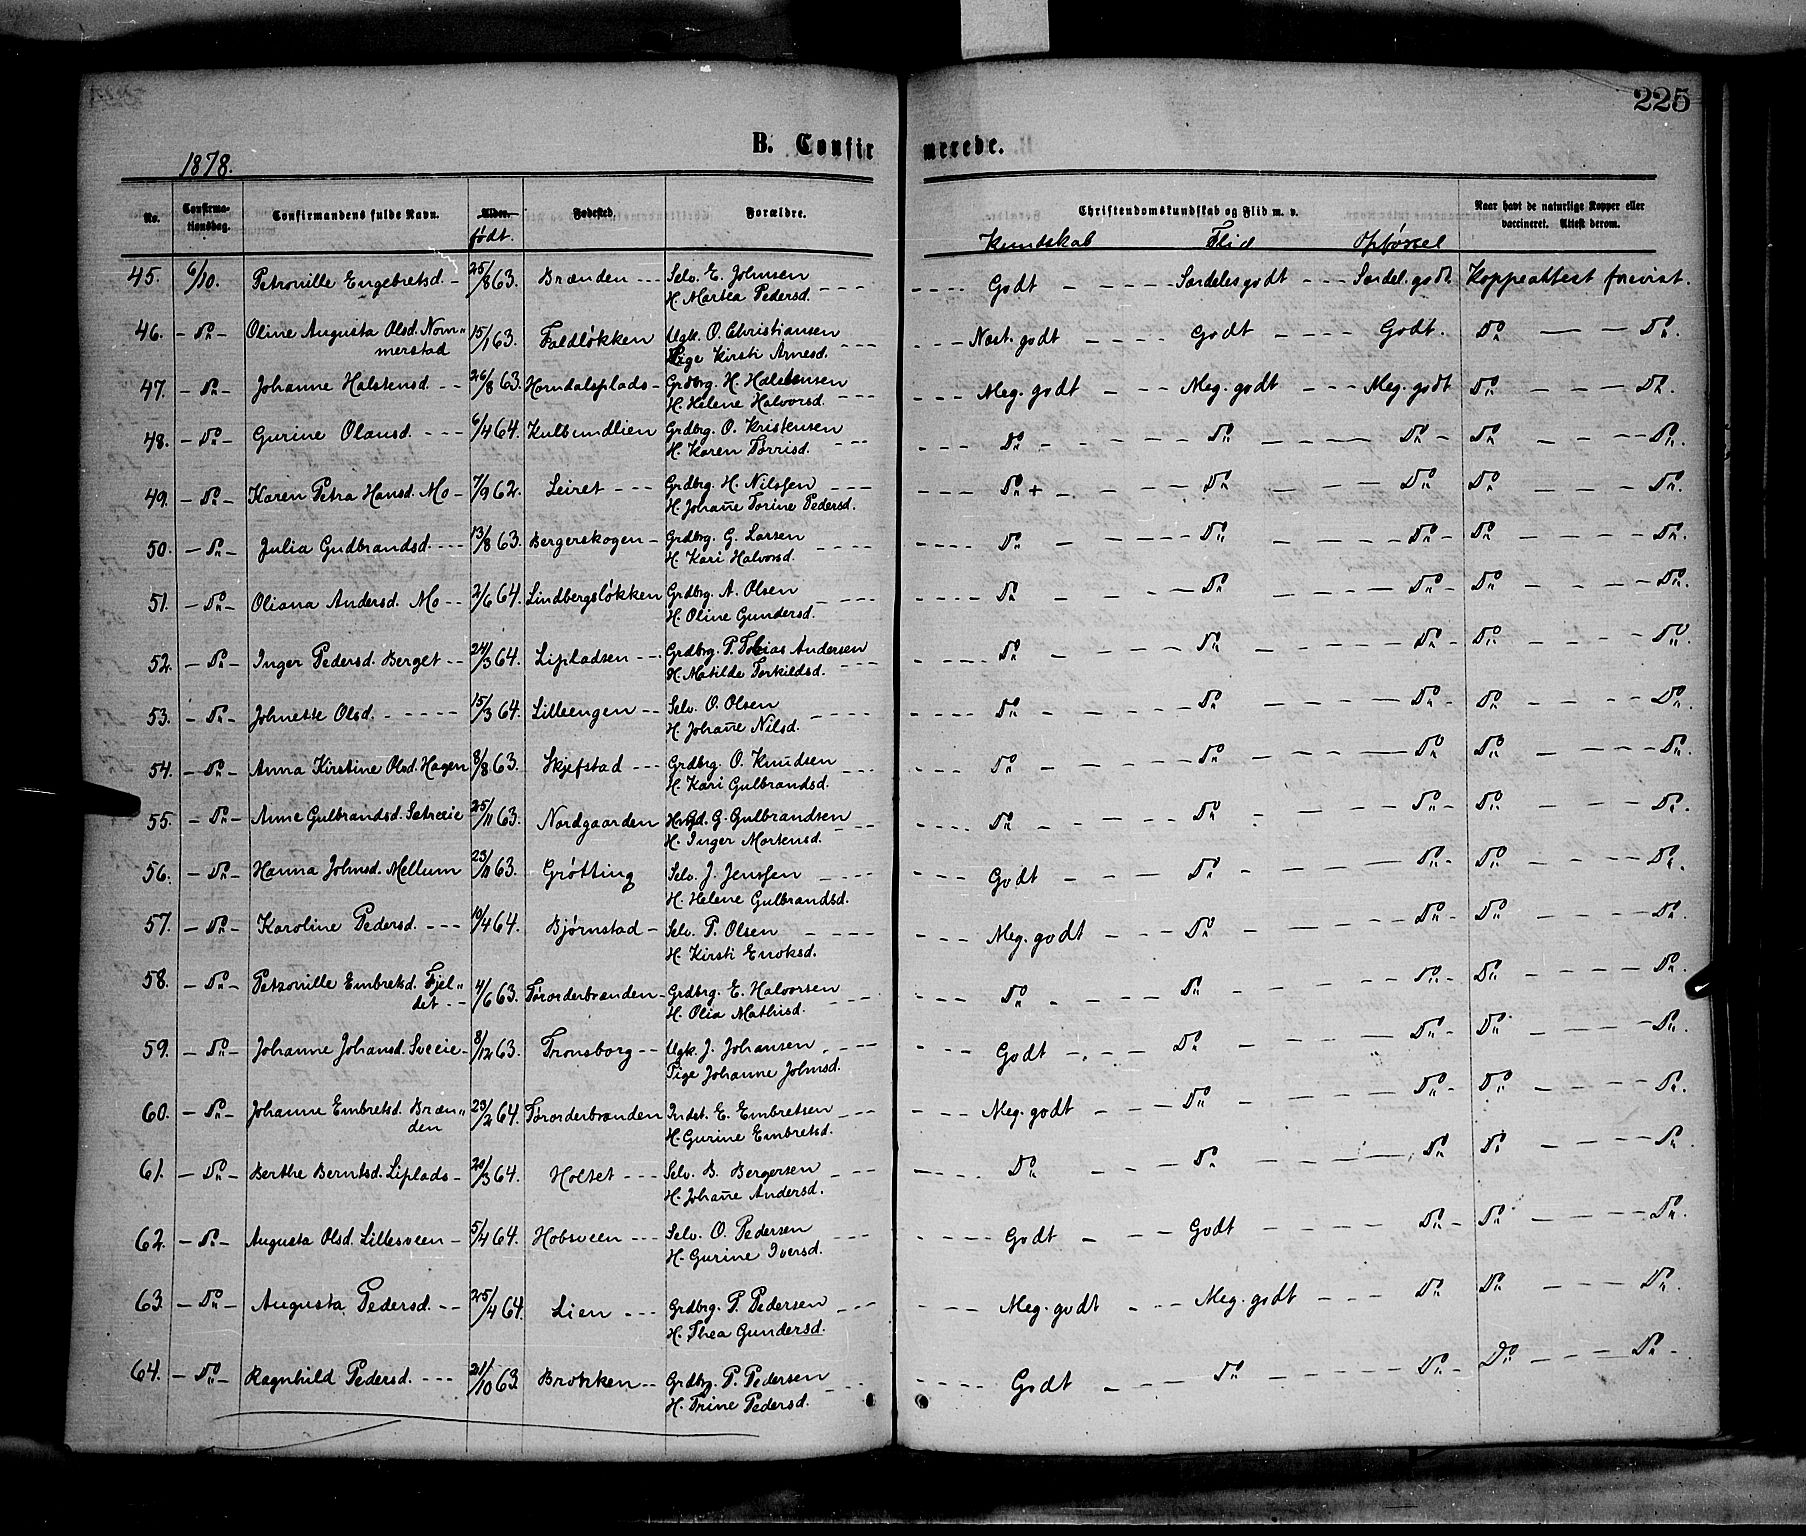 225
B. Confirmerede.
1878.
No. Confirmationsdag. Confirmandens fulde Navn. Alder. født. Fødested. Forældre. Christendomskundskab og Flid m. v. Kundskab Flid Opførsel Naar havt de naturlige Kopper eller vaccineret. Attest derom.
45. 6/10. Petronille Engebretsd. - 25/8 63. Brænden - - - Selv. E. Johnsen - - - - Godt - - - - Særdeles godt - - - Særdel. godt. Koppeattest forevist.
H. Martea Pedersd.
46. - Do - Oline Augusta Olsd. Nom- 15/1 63. Faldløkken Ugk. O. Christiansen - - - Næst. godt - - - Godt - - - - Godt. Do - - - Do.
merstad Pige Kirsti Arnesd.
47. - Do - Johanne Halstensd. - - 26/8 63. Horndalsplads - Grdbrg. H. Halstensen - - - Meg. godt - Meg. godt - - - Meg. godt Do - - - Do.
H. Helene Halvorsd.
48. - Do - Gurine Olausd. - - - 6/4 64. Kulbundlien Grdbrg. O. Kristensen - - - Do - - - - Do - - - Do - Do - - - Do.
H. Karen Tørrisd.
49. - Do - Karen Petra Hansd. Mo - 7/9 62. Leiret - - - Grdbrg. H. Nilssen - - - Do + - - - - Do - - - Do Do - - - Do.
H. Johanne Torine Pedersd.
50. - Do - Julia Gudbrandsd. - - - 13/8 63. Bergerskogen - Grdbrg. G. Larsen - - - Do - - - - Do - - - Do - Do - - - Do.
H. Kari Halvorsd.
51. - Do - Oliana Andersd. Mo - - 2/6 64. Lindbergsløkken Grdbrg. A. Olsen - - - Do - - - - Do - - - Do - Do - - - Do.
H. Oline Gundersd.
52. - Do - Inger Pedersd. Berget - - 24/3 64. Lipladsen - - - Grdbrg. P. Tobias Andersen - - - Do - - - - Do - - - Do - Do - - - Do
H. Matilde Torkildsd.
53. - Do - Johnette Olsd. - - - - - 15/3 64. Lilleengen - - Selv. O. Olsen - - - Do - - - - Do - - - Do - Do - - - Do
H. Johanne Nilsd.
54. - Do - Anna Kirstine Olsd. Hagen 8/8 63. Skjefstad - - - Grdbrg. O. Knudsen - - - Do - - - - Do - - - Do - Do - - - Do.
H. Kari Gulbrandsd.
55. - Do - Anne Gulbrandsd. Sætreeie 25/11 63. Nordgaarden G. Gulbrandsen - - - Do - - - - Do - - - Do - Do - - - Do.
H. Inger Mortensd.
56. - Do - Hanna Johnsd. Mellum 23/11 63. Grøtting Selv. J. Jenssen - - - Godt - - - Do - - - Do - Do - - - Do.
H. Helene Gulbrandsd.
57. - Do - Karoline Pedersd. - - - 10/4 64. Bjørnstad - Selv. P. Olsen - - - Meg. godt - - - Do - - - Do - Do - - - Do.
H. Kirsti Enoksd.
58. - Do - Petronille Embretsd. Fjel- 4/6 63. Tørorderbrænden - Grdbrg. E. Halvorsen - - - Do - - - - Do - - - Do - Do - - - Do.
det - - H. Olia Mathisd.
59. - Do - Johanne Johansd. Sveeie - 8/12 63. Tronsborg - - Ugk. J. Johansen - - - Godt - - - Do - - - Do - Do - - - Do.
Pige Johanne Johnsd.
60. - Do - Johanne Embretsd. Bræn- 29/2 64. Tørorderbrænden Indst. E. Embretsen - - - Meg. godt - - - Do - - - Do - Do - - - Do.
den H. Gurine Embretsd.
61. - Do - Berthe Berntsd. Liplads - 20/3 64. Holtet - - - Selv. B. Bergersen - - - Do - - - - Do - - - Do Do - - - Do
H. Johanne Andersd.
62. - Do - Augusta Olsd. Lillesveen - 5/4 64. Hobsveen - - - Selv. O. Pedersen - - - Godt - - - Godt - - - - Do - Do - - - Do.
H. Gurine Iversd.
63. - Do - Augusta Pedersd. - - 25/4 64. Lien - - - Grdbrg. P. Pedersen - - - Meg. godt - - - Meg. godt - - - Do Do - - - Do.
H. Thea Gundersd.
64. - Do - Ragnhild Pedersd. - - - 21/10 63. Brokken - - Grdbrg P. Pedersen - - - Godt - - - Do - - - Do - Do - - - Do -
H. Trine Pedersd.